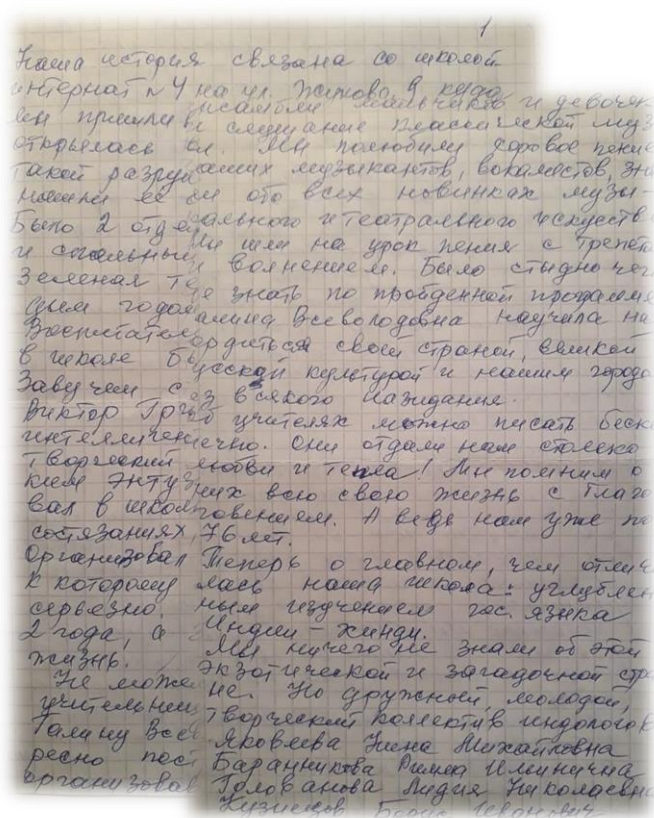 1
Наша история связана со школой
интернат №4 на ул. Жукова 9, куда
мы пришли
открылась
такой разрух
нашли ее
Было 2 отде
и спальные
Зеленая
дым годом
Воспитател
в школе бы
Завучем с
Виктор Григ
интеллиген
творческий
ким энтуз
вал в школ
состязаниях,
Организовал
к которому
серьезно
2 года, а
жизнь.
Не може
учительниц
Галину Всев
ресно пост
организовав
нсамбли мальчиков и девочек
и слушание классической муз
ли. Мы полюбили хоровое пение
аших музыкантов, вокалистов, зна
ли обо всех новинках музы-
кального и театрального искусств
Мы шли на урок пения с трепето
и волнением. Было стыдно чег
не знать по пройденной программе
Галина Всеволодовна научила на
гордиться своей страной, великой
русской культурой и нашим городо
без всякого назидания.
Об учителях можно писать беск
нечно. Они отдали нам столько
любви и тепла! Мы помним о
них всю свою жизнь с благо
говением. А ведь нам уже по
76 лет.
Теперь о главном, чем отлич
лась наша школа: углублен
ным изучением гос. языка
Индии - хинди.
Мы ничего не знали об этой
экзотической и загадочной стра
не. Но дружный, молодой,
творческий коллектив индологов
Яковлева Нина Михайловна
Баранникова Римма Ильинична
Голованова Лидия Николаевна
Кузнецов Борис Иванович